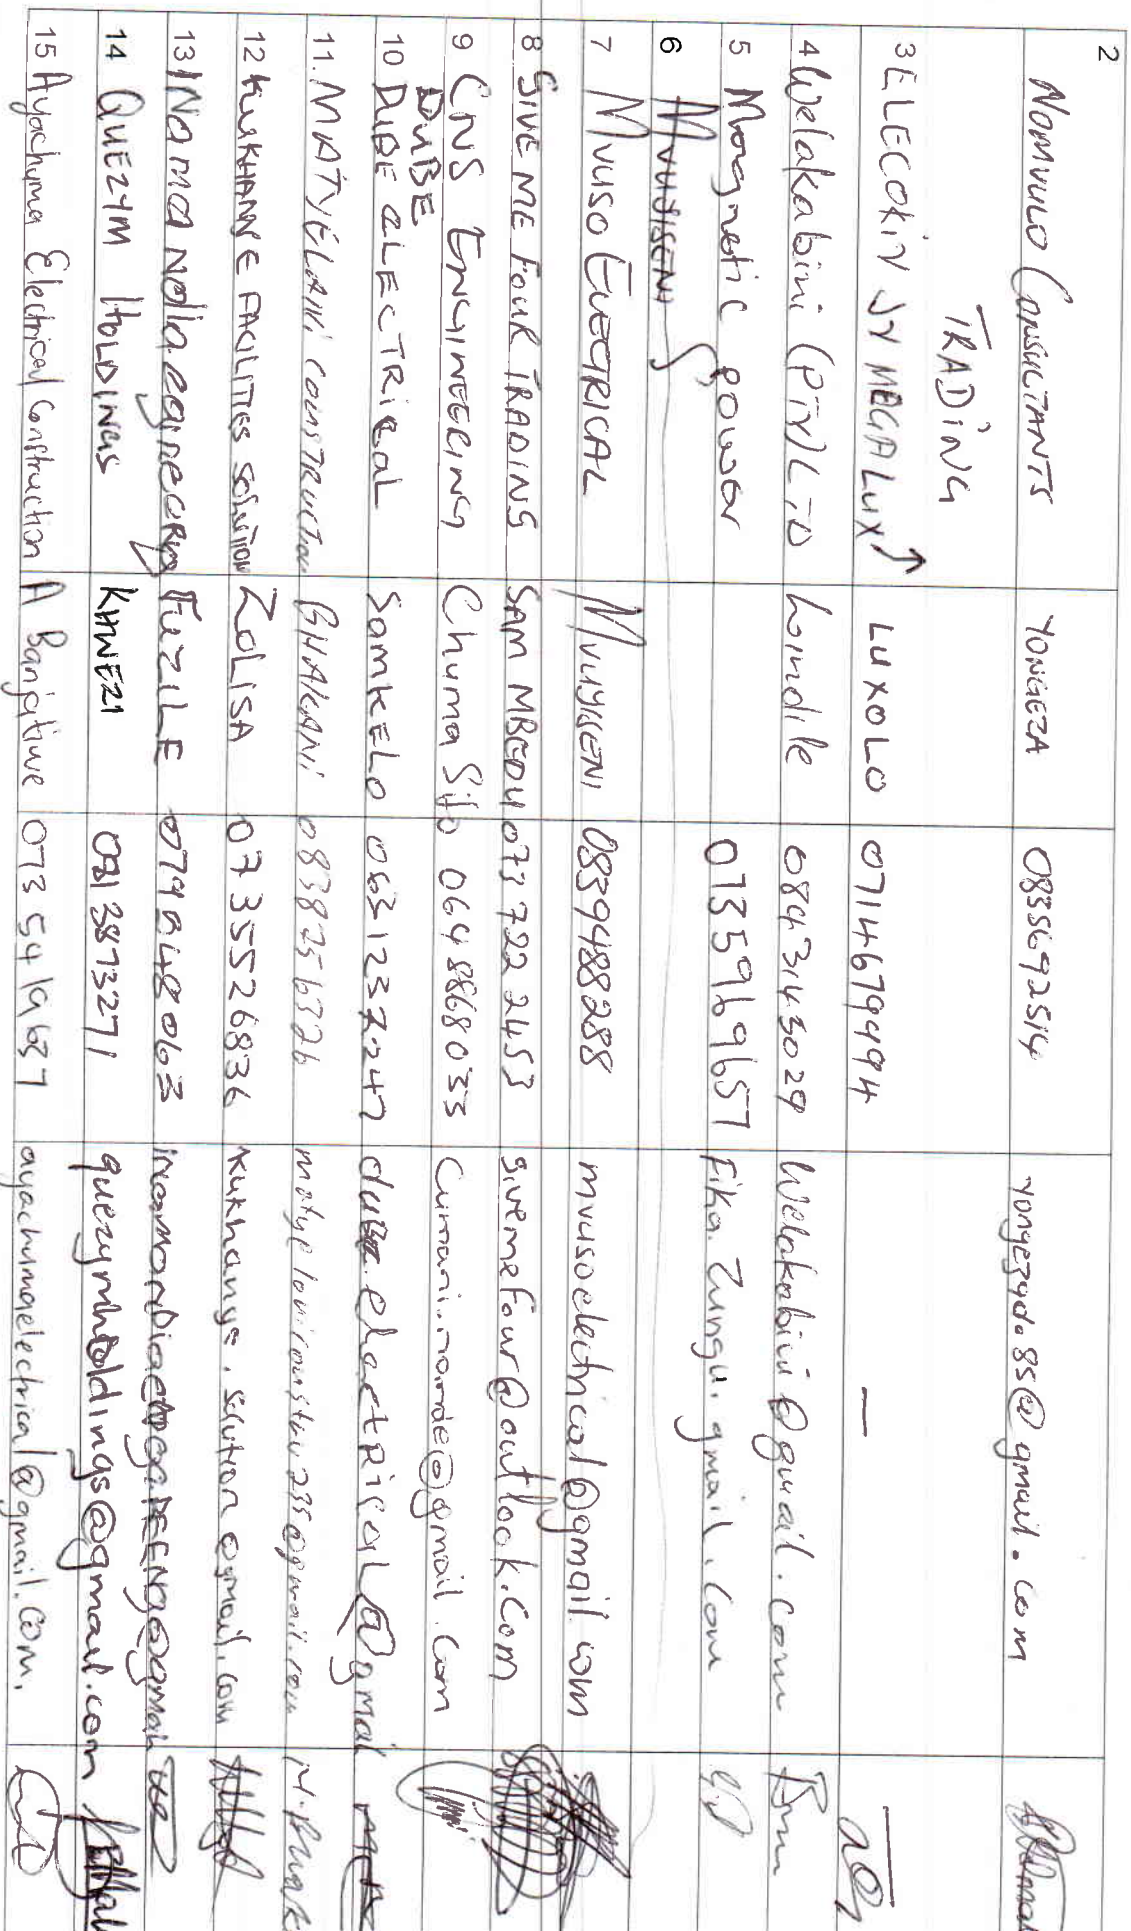 2 NOMVULO CONSULTANTS YONGEZA 0835692514 yongezyo.85@gmail.com
TRADING
3 ELECOKIN JV MEGALUX LUXOLO 0714679494 —
4 Welakabini (PTY) LTD Loindile 0843143029 Welakabini@gmail.com
5 Magnetic power 0735969657 Fika.Zungu.gmail.com
6 MVUYISENI
7 MVUSO ELECTRICAL MVUYISENI 0839488288 mvusoelectrical@gmail.com
8 GIVE ME FOUR TRADING SAM MBEDU 073 722 2453 givemefour@outlook.com
9 CNS ENGINEERING Chuma Sifo 064 8868 033
DUBE
10 DUBE ELECTRICAL SAMKELO 0631237247 dube.electrical@gmail
11. MATYELANI CONSTRUCTION 0838256326
12 KUKHANYE FACILITIES SOLUTION ZOLISA 0735526836 kukhanye.solution@gmail.com
13 FUZILE
14 QUEZYM HOLDINGS KHWEZI 0813873271 quezymholdings@gmail.com
15 Ayachuma Electrical Construction A Banjatwe 073 541 9637 ayachumaelectrical@gmail.com.